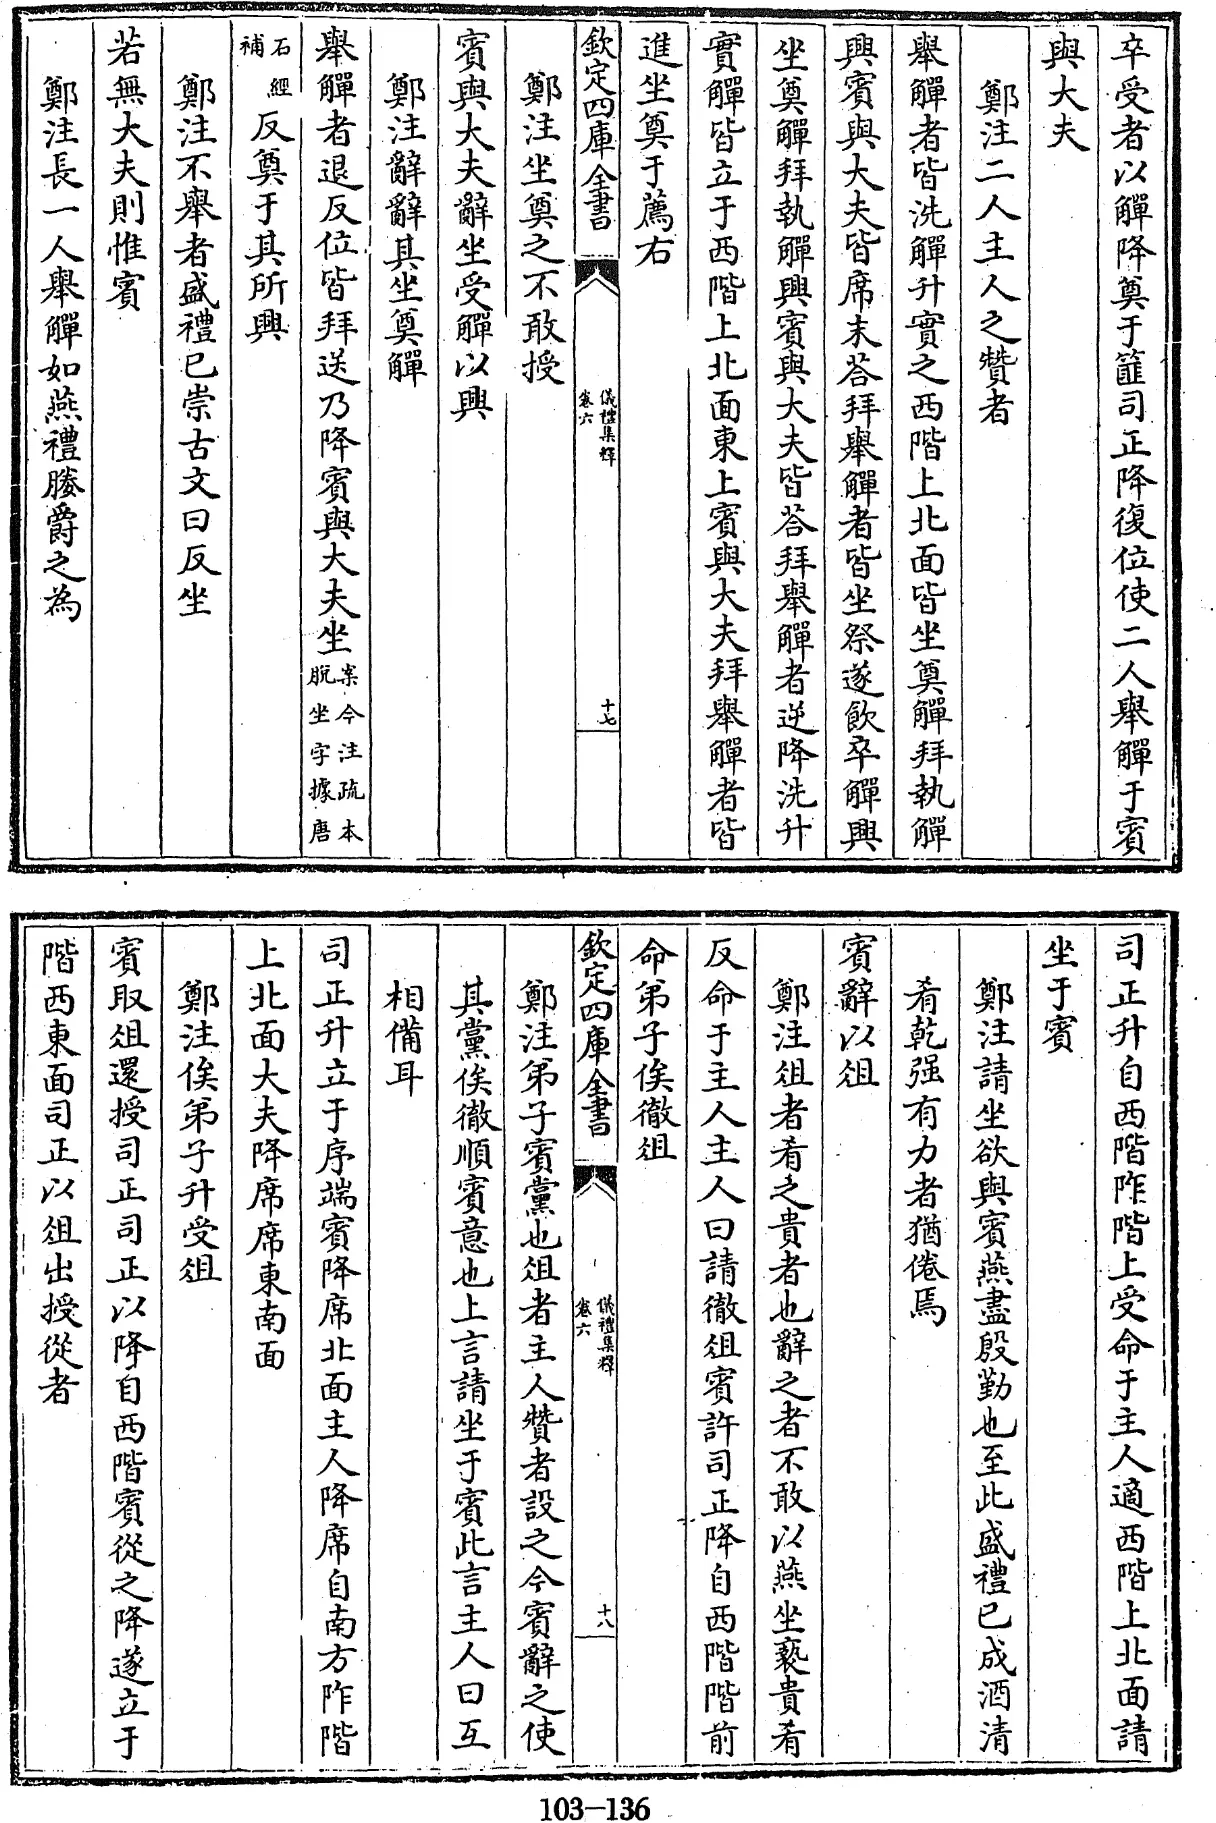 卒受者以觶降奠于篚司正降復位使二人舉觶于賓
與大夫
鄭注二人主人之贊者
舉觶者皆洗觶升實之西階上北面皆坐奠觶拜執觶
興賓與大夫皆席末荅拜舉觶者皆坐祭遂飲卒觶興
坐奠觶拜執觶興賓與大夫皆荅拜舉觶者逆降洗升
實觶皆立于西階上北面東上賓與大夫拜舉觶者皆
進坐奠于薦右
欽定四庫全書
儀禮集釋
卷六
十七
鄭注坐奠之不敢授
賓與大夫辭坐受觶以興
鄭注辭辭其坐奠觶
舉觶者退反位皆拜送乃降賓與大夫坐案今注疏本
脱坐字據唐
石經
補反奠于其所興
鄭注不舉者盛禮已崇古文曰反坐
若無大夫則惟賓
鄭注長一人舉觶如燕禮媵爵之為
司正升自西階阼階上受命于主人適西階上北面請
坐于賓
鄭注請坐欲與賓燕盡殷勤也至此盛禮已成酒清
肴乾强有力者猶倦焉
賓辭以俎
鄭注俎者肴之貴者也辭之者不敢以燕坐褻貴肴
反命于主人主人曰請徹俎賓許司正降自西階階前
命弟子俟徹俎
欽定四庫全書
儀禮集釋
卷六
十八
鄭注弟子賓黨也俎者主人贊者設之今賓辭之使
其黨俟徹順賓意也上言請坐于賓此言主人曰互
相備耳
司正升立于序端賓降席北面主人降席自南方阼階
上北面大夫降席席東南面
鄭注俟弟子升受俎
賓取俎還授司正司正以降自西階賓從之降遂立于
階西東面司正以俎出授從者
103-136